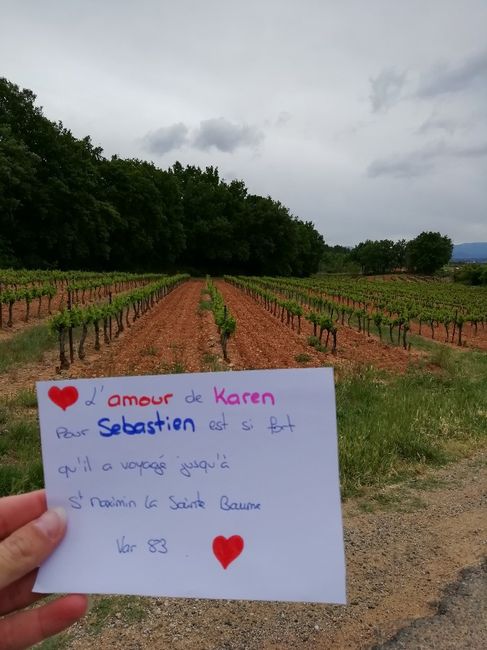 L'amour de Karen
Pour Sebastien est si fort
qu'il a voyagé jusqu'à
St Maximin La Sainte Baume
Var 83